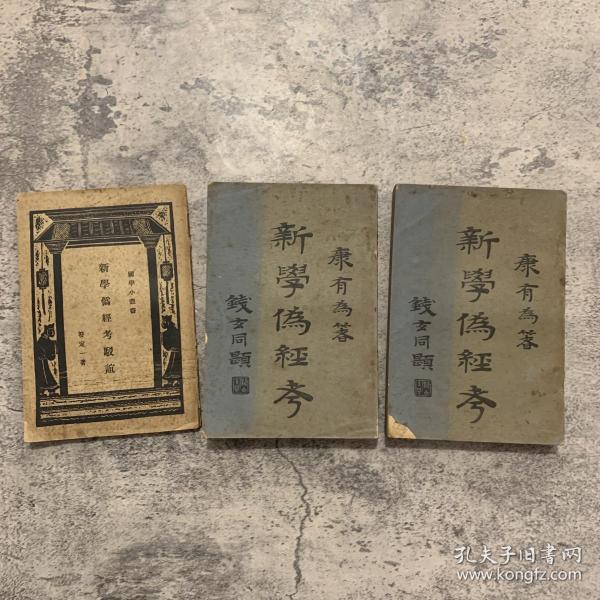 國學小叢書
新學偽經考駁誼
符定一著
康有為著
新學偽經考
錢玄同題
康有為著
新學偽經考
錢玄同題
孔夫子旧书网
www.kongfz.com